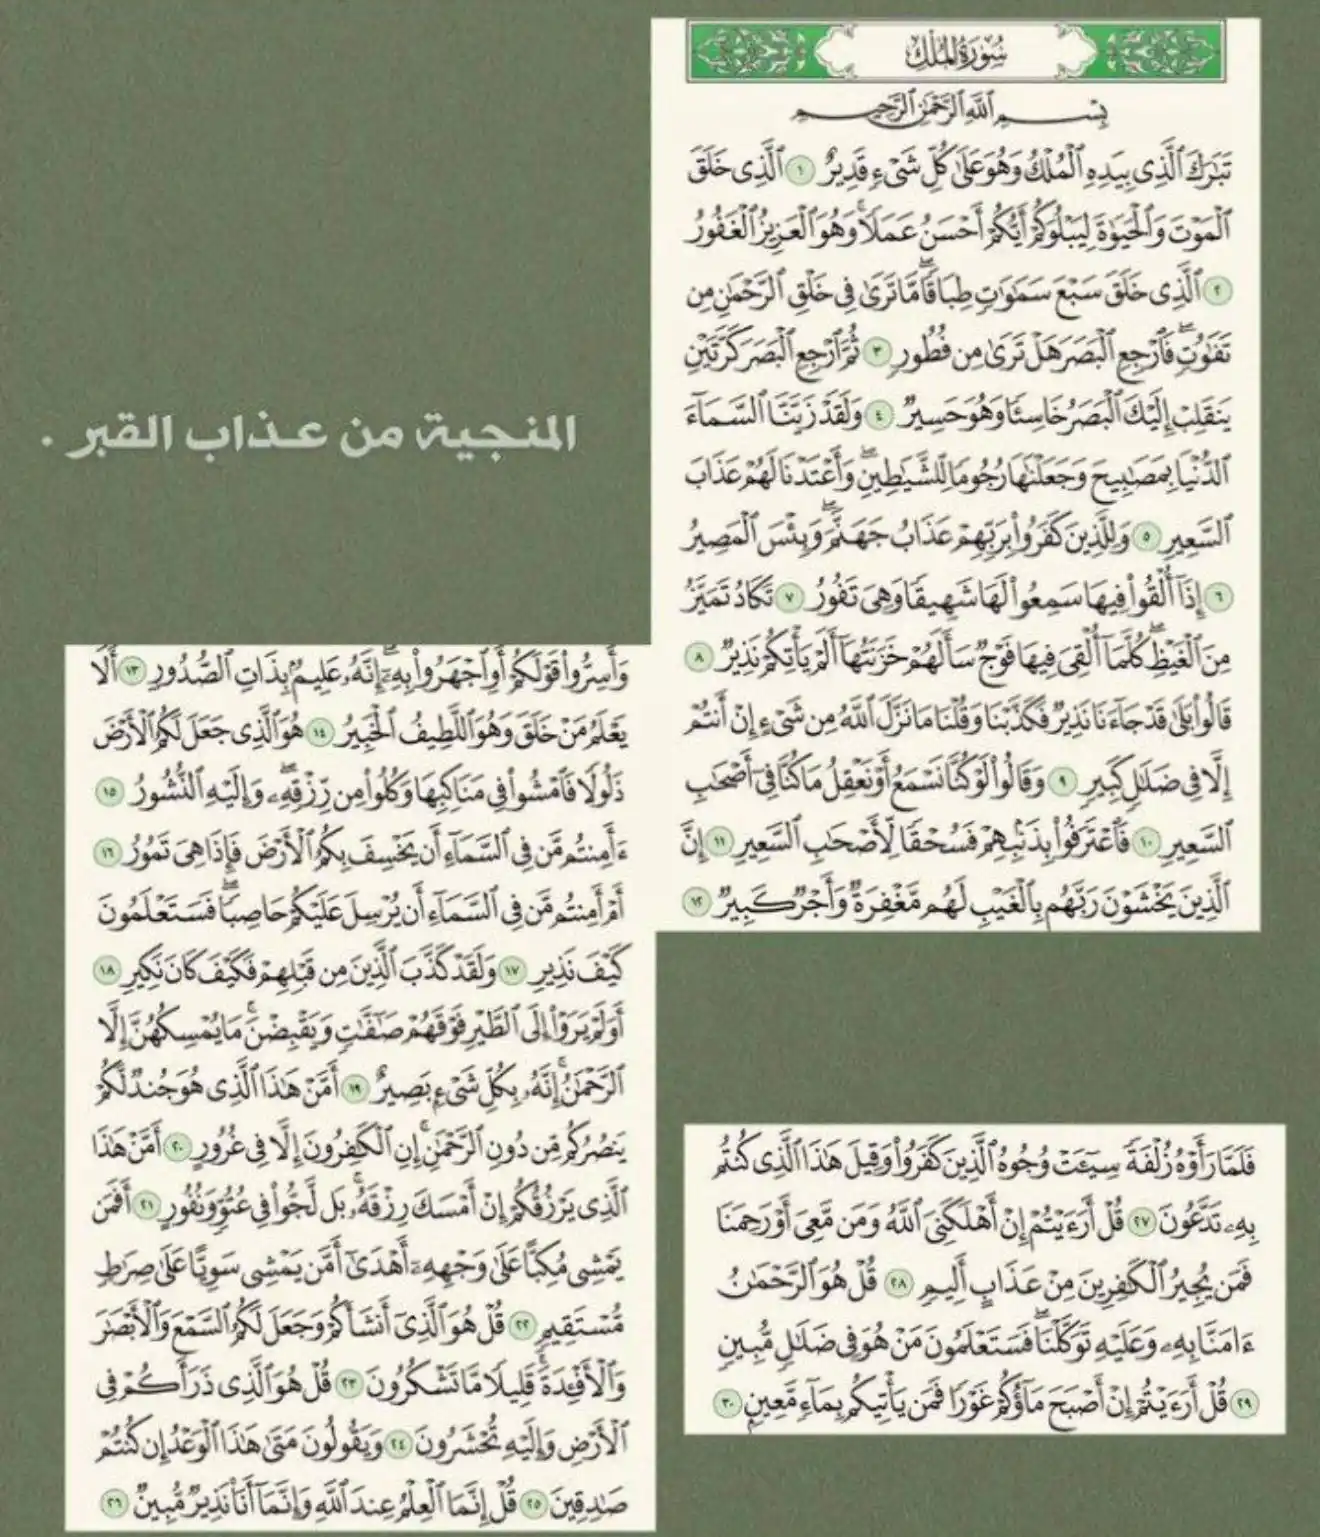 سُورَةُ الْمُلْكِ
بِسْمِ ٱللَّهِ ٱلرَّحْمَٰنِ ٱلرَّحِيمِ
تَبَٰرَكَ ٱلَّذِى بِيَدِهِ ٱلْمُلْكُ وَهُوَ عَلَىٰ كُلِّ شَىْءٍ قَدِيرٌ ١ ٱلَّذِى خَلَقَ
ٱلْمَوْتَ وَٱلْحَيَوٰةَ لِيَبْلُوَكُمْ أَيُّكُمْ أَحْسَنُ عَمَلًا ۚ وَهُوَ ٱلْعَزِيزُ ٱلْغَفُورُ
٢ ٱلَّذِى خَلَقَ سَبْعَ سَمَٰوَٰتٍ طِبَاقًا ۖ مَّا تَرَىٰ فِى خَلْقِ ٱلرَّحْمَٰنِ مِن
تَفَٰوُتٍ ۖ فَٱرْجِعِ ٱلْبَصَرَ هَلْ تَرَىٰ مِن فُطُورٍ ٣ ثُمَّ ٱرْجِعِ ٱلْبَصَرَ كَرَّتَيْنِ
يَنقَلِبْ إِلَيْكَ ٱلْبَصَرُ خَاسِئًا وَهُوَ حَسِيرٌ ٤ وَلَقَدْ زَيَّنَّا ٱلسَّمَآءَ
ٱلدُّنْيَا بِمَصَٰبِيحَ وَجَعَلْنَٰهَا رُجُومًا لِّلشَّيَٰطِينِ ۖ وَأَعْتَدْنَا لَهُمْ عَذَابَ
ٱلسَّعِيرِ ٥ وَلِلَّذِينَ كَفَرُوا۟ بِرَبِّهِمْ عَذَابُ جَهَنَّمَ ۖ وَبِئْسَ ٱلْمَصِيرُ
٦ إِذَآ أُلْقُوا۟ فِيهَا سَمِعُوا۟ لَهَا شَهِيقًا وَهِىَ تَفُورُ ٧ تَكَادُ تَمَيَّزُ
مِنَ ٱلْغَيْظِ ۖ كُلَّمَآ أُلْقِىَ فِيهَا فَوْجٌ سَأَلَهُمْ خَزَنَتُهَآ أَلَمْ يَأْتِكُمْ نَذِيرٌ ٨
قَالُوا۟ بَلَىٰ قَدْ جَآءَنَا نَذِيرٌ فَكَذَّبْنَا وَقُلْنَا مَا نَزَّلَ ٱللَّهُ مِن شَىْءٍ إِنْ أَنتُمْ
إِلَّا فِى ضَلَٰلٍ كَبِيرٍ ٩ وَقَالُوا۟ لَوْ كُنَّا نَسْمَعُ أَوْ نَعْقِلُ مَا كُنَّا فِىٓ أَصْحَٰبِ
ٱلسَّعِيرِ ١٠ فَٱعْتَرَفُوا۟ بِذَنۢبِهِمْ فَسُحْقًا لِّأَصْحَٰبِ ٱلسَّعِيرِ ١١ إِنَّ
ٱلَّذِينَ يَخْشَوْنَ رَبَّهُم بِٱلْغَيْبِ لَهُم مَّغْفِرَةٌ وَأَجْرٌ كَبِيرٌ ١٢
المنجية من عذاب القبر .
وَأَسِرُّوا۟ قَوْلَكُمْ أَوِ ٱجْهَرُوا۟ بِهِۦٓ ۖ إِنَّهُۥ عَلِيمٌۢ بِذَاتِ ٱلصُّدُورِ ١٣ أَلَا
يَعْلَمُ مَنْ خَلَقَ وَهُوَ ٱللَّطِيفُ ٱلْخَبِيرُ ١٤ هُوَ ٱلَّذِى جَعَلَ لَكُمُ ٱلْأَرْضَ
ذَلُولًا فَٱمْشُوا۟ فِى مَنَاكِبِهَا وَكُلُوا۟ مِن رِّزْقِهِۦ ۖ وَإِلَيْهِ ٱلنُّشُورُ ١٥
ءَأَمِنتُم مَّن فِى ٱلسَّمَآءِ أَن يَخْسِفَ بِكُمُ ٱلْأَرْضَ فَإِذَا هِىَ تَمُورُ ١٦
أَمْ أَمِنتُم مَّن فِى ٱلسَّمَآءِ أَن يُرْسِلَ عَلَيْكُمْ حَاصِبًا ۖ فَسَتَعْلَمُونَ
كَيْفَ نَذِيرِ ١٧ وَلَقَدْ كَذَّبَ ٱلَّذِينَ مِن قَبْلِهِمْ فَكَيْفَ كَانَ نَكِيرِ ١٨
أَوَلَمْ يَرَوْا۟ إِلَى ٱلطَّيْرِ فَوْقَهُمْ صَٰٓفَّٰتٍ وَيَقْبِضْنَ ۚ مَا يُمْسِكُهُنَّ إِلَّا
ٱلرَّحْمَٰنُ ۚ إِنَّهُۥ بِكُلِّ شَىْءٍۭ بَصِيرٌ ١٩ أَمَّنْ هَٰذَا ٱلَّذِى هُوَ جُندٌ لَّكُمْ
يَنصُرُكُم مِّن دُونِ ٱلرَّحْمَٰنِ ۚ إِنِ ٱلْكَٰفِرُونَ إِلَّا فِى غُرُورٍ ٢٠ أَمَّنْ هَٰذَا
ٱلَّذِى يَرْزُقُكُمْ إِنْ أَمْسَكَ رِزْقَهُۥ ۚ بَل لَّجُّوا۟ فِى عُتُوٍّ وَنُفُورٍ ٢١ أَفَمَن
يَمْشِى مُكِبًّا عَلَىٰ وَجْهِهِۦٓ أَهْدَىٰٓ أَمَّن يَمْشِى سَوِيًّا عَلَىٰ صِرَٰطٍ
مُّسْتَقِيمٍ ٢٢ قُلْ هُوَ ٱلَّذِىٓ أَنشَأَكُمْ وَجَعَلَ لَكُمُ ٱلسَّمْعَ وَٱلْأَبْصَٰرَ
وَٱلْأَفْـِٔدَةَ ۖ قَلِيلًا مَّا تَشْكُرُونَ ٢٣ قُلْ هُوَ ٱلَّذِى ذَرَأَكُمْ فِى
ٱلْأَرْضِ وَإِلَيْهِ تُحْشَرُونَ ٢٤ وَيَقُولُونَ مَتَىٰ هَٰذَا ٱلْوَعْدُ إِن كُنتُمْ
صَٰدِقِينَ ٢٥ قُلْ إِنَّمَا ٱلْعِلْمُ عِندَ ٱللَّهِ وَإِنَّمَآ أَنَا۠ نَذِيرٌ مُّبِينٌ ٢٦
فَلَمَّا رَأَوْهُ زُلْفَةً سِيٓـَٔتْ وُجُوهُ ٱلَّذِينَ كَفَرُوا۟ وَقِيلَ هَٰذَا ٱلَّذِى كُنتُم
بِهِۦ تَدَّعُونَ ٢٧ قُلْ أَرَءَيْتُمْ إِنْ أَهْلَكَنِىَ ٱللَّهُ وَمَن مَّعِىَ أَوْ رَحِمَنَا
فَمَن يُجِيرُ ٱلْكَٰفِرِينَ مِنْ عَذَابٍ أَلِيمٍ ٢٨ قُلْ هُوَ ٱلرَّحْمَٰنُ
ءَامَنَّا بِهِۦ وَعَلَيْهِ تَوَكَّلْنَا ۖ فَسَتَعْلَمُونَ مَنْ هُوَ فِى ضَلَٰلٍ مُّبِينٍ
٢٩ قُلْ أَرَءَيْتُمْ إِنْ أَصْبَحَ مَآؤُكُمْ غَوْرًا فَمَن يَأْتِيكُم بِمَآءٍ مَّعِينٍۭ ٣٠